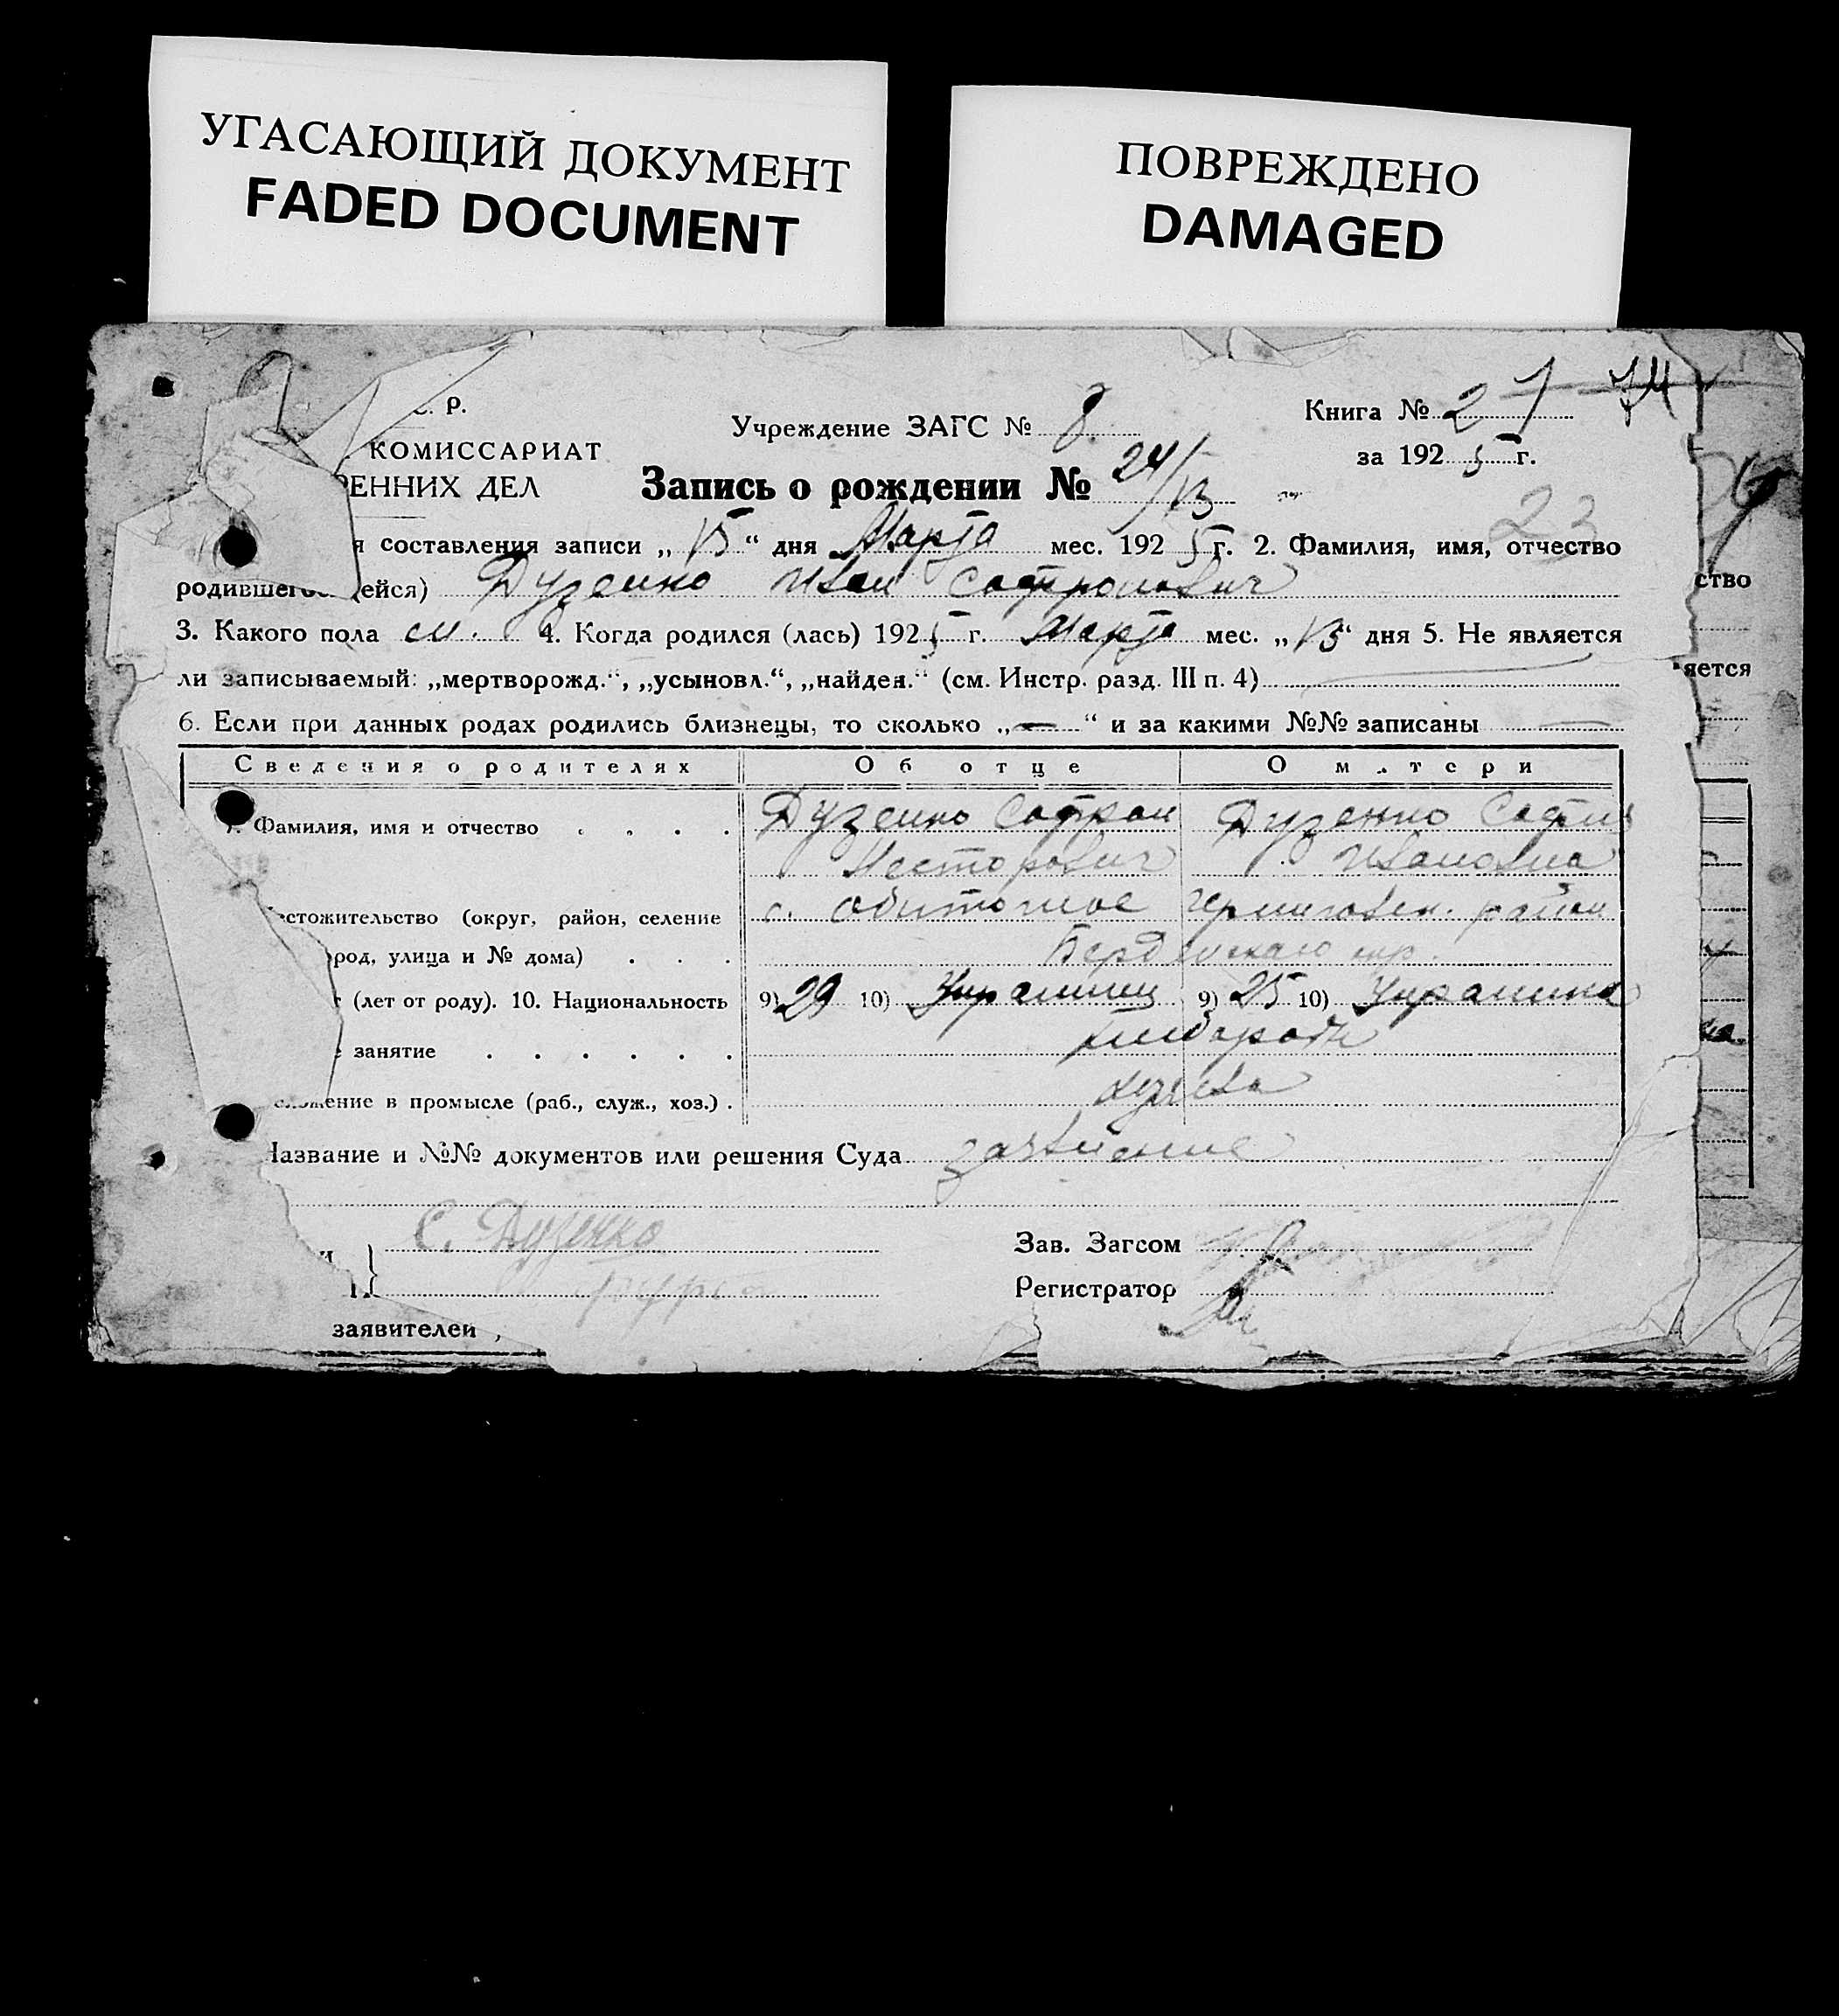 УГАСАЮЩИЙ ДОКУМЕНТ
FADED DOCUMENT
ПОВРЕЖДЕНО
DAMAGED
С. Р.
КОМИССАРИАТ
РЕННИХ ДЕЛ
Учреждение ЗАГС № 8
Книга № 27 74
за 1925 г.
Запись о рождении № 24/13
23
я составления записи „15“ дня Марта мес. 1925 г. 2. Фамилия, имя, отчество
родившегося (ейся) Дузенко Иван Сафронович
3. Какого пола м. 4. Когда родился (лась) 1925 г. Марта мес. „13“ дня 5. Не является
ли записываемый: „мертворожд.“, „усыновл.“, „найден.“ (см. Инстр. разд. III п. 4)
6. Если при данных родах родились близнецы, то сколько „—“ и за какими №№ записаны —
Сведения о родителях Об отце О м.тери
7. Фамилия, имя и отчество Дузенко Сафрон Дузенко София
Несторович Ивановна
естожительство (округ, район, селение с. Обиточное Черниговск. район
ород, улица и № дома) Бердянского окр.
т (лет от роду). 10. Национальность 9) 29 10) Украинец 9) 25 10) Украинка
е занятие хлебороб
ложение в промысле (раб., служ., хоз.)
Название и №№ документов или решения Суда
С. Дузенко
Зав. Загсом
Регистратор
заявителей
ство
яется